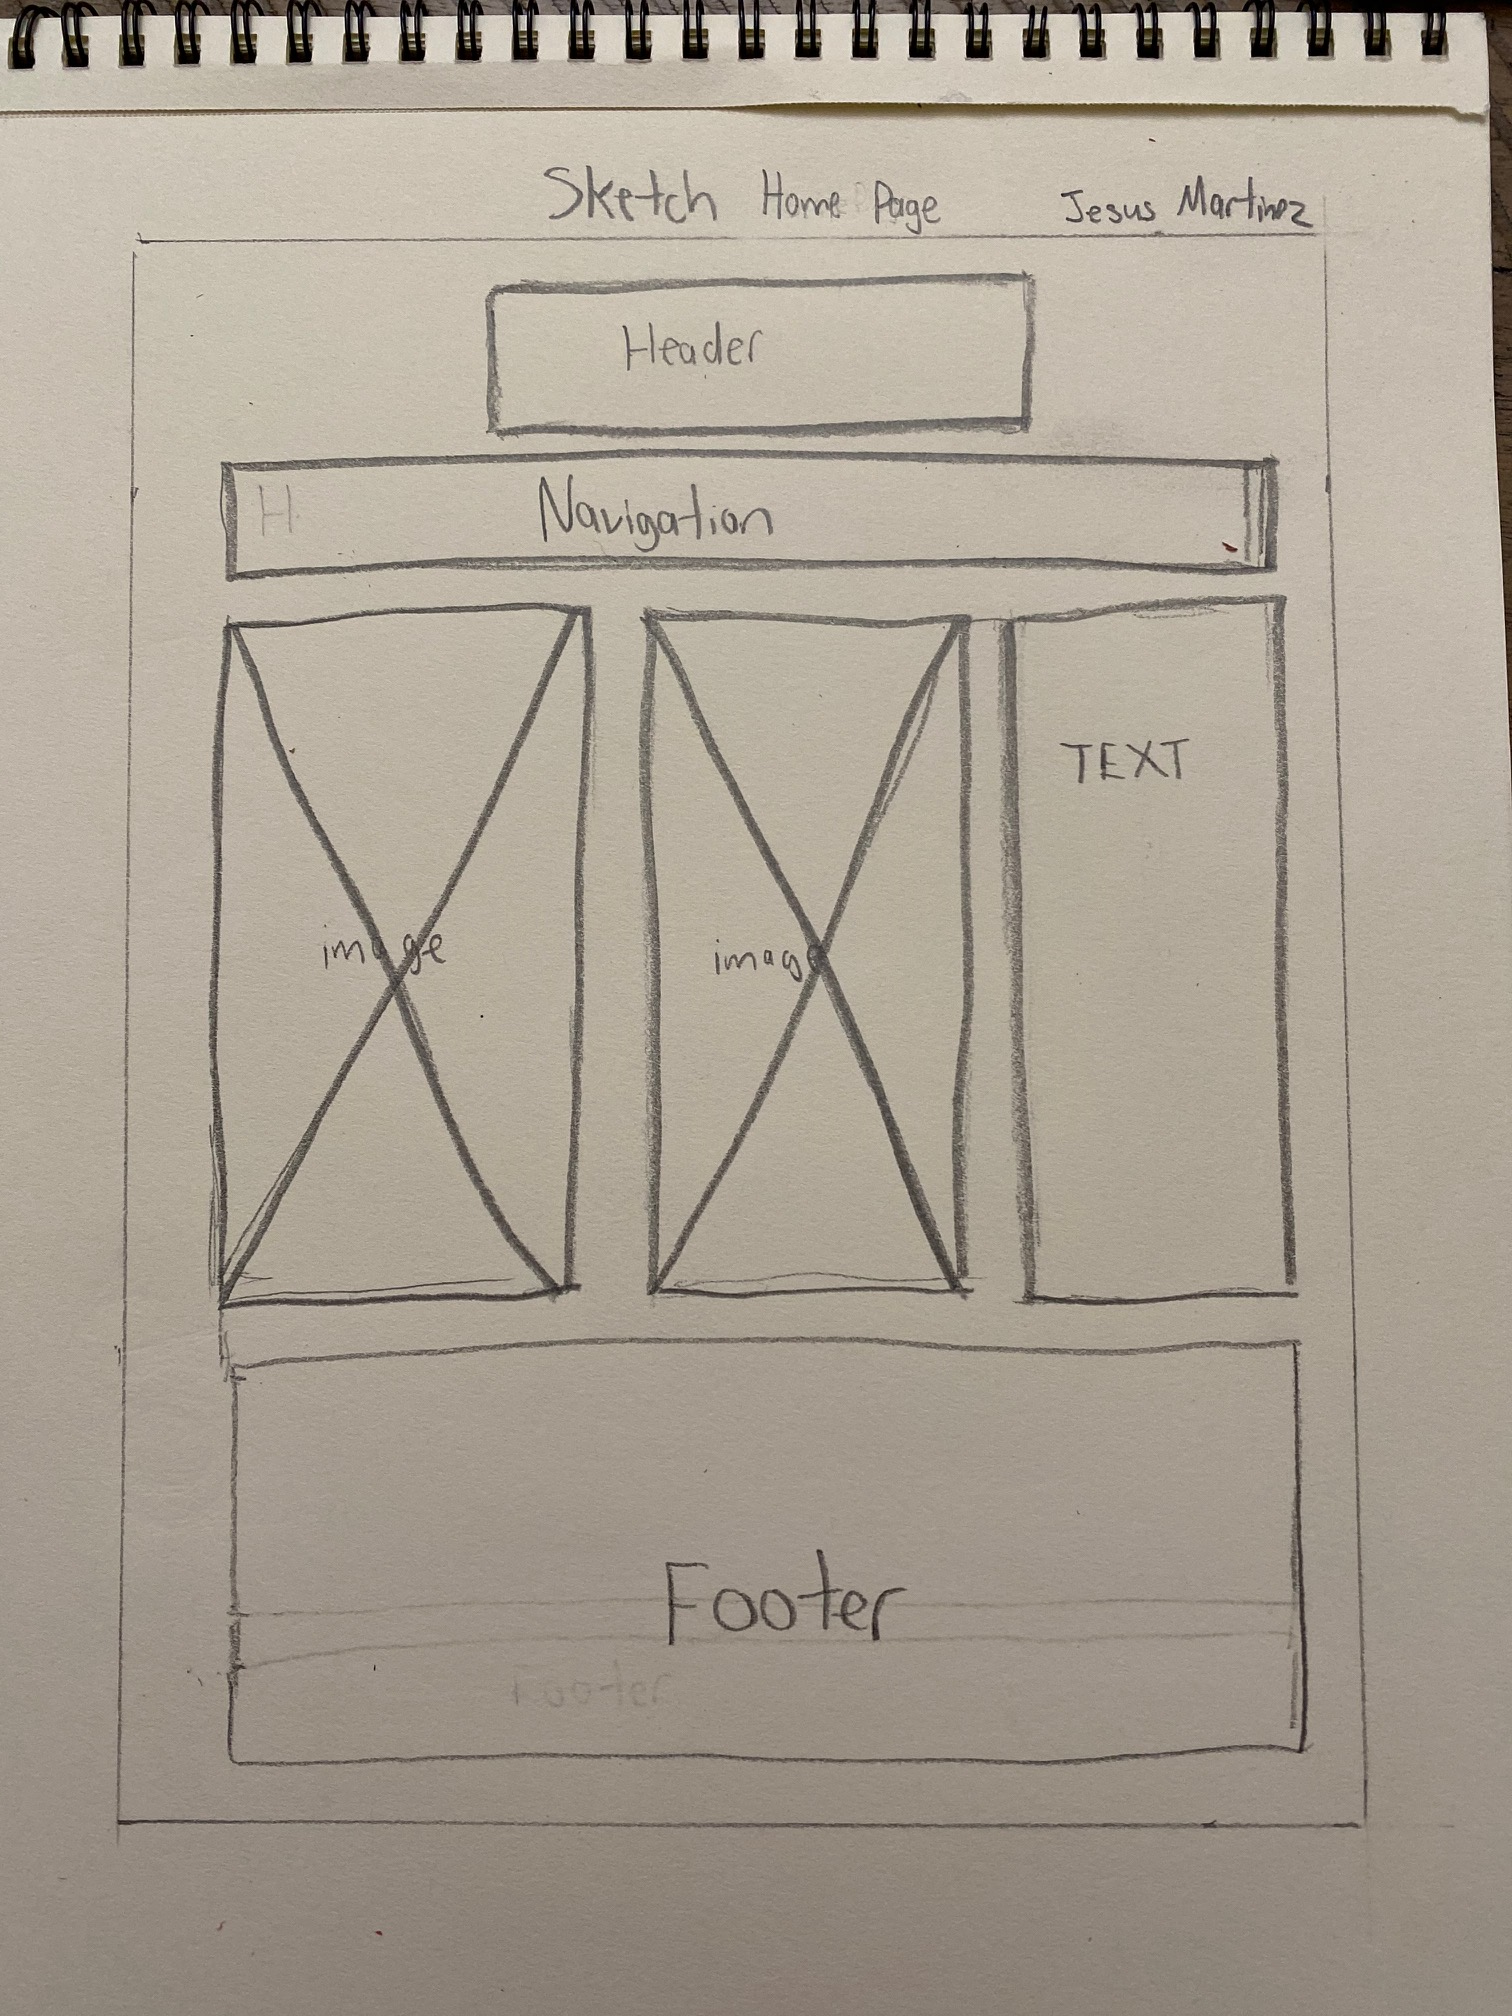 Sketch Home Page Jesus Martinez
Header
H
Navigation
TEXT
image
image
Footer
Footer